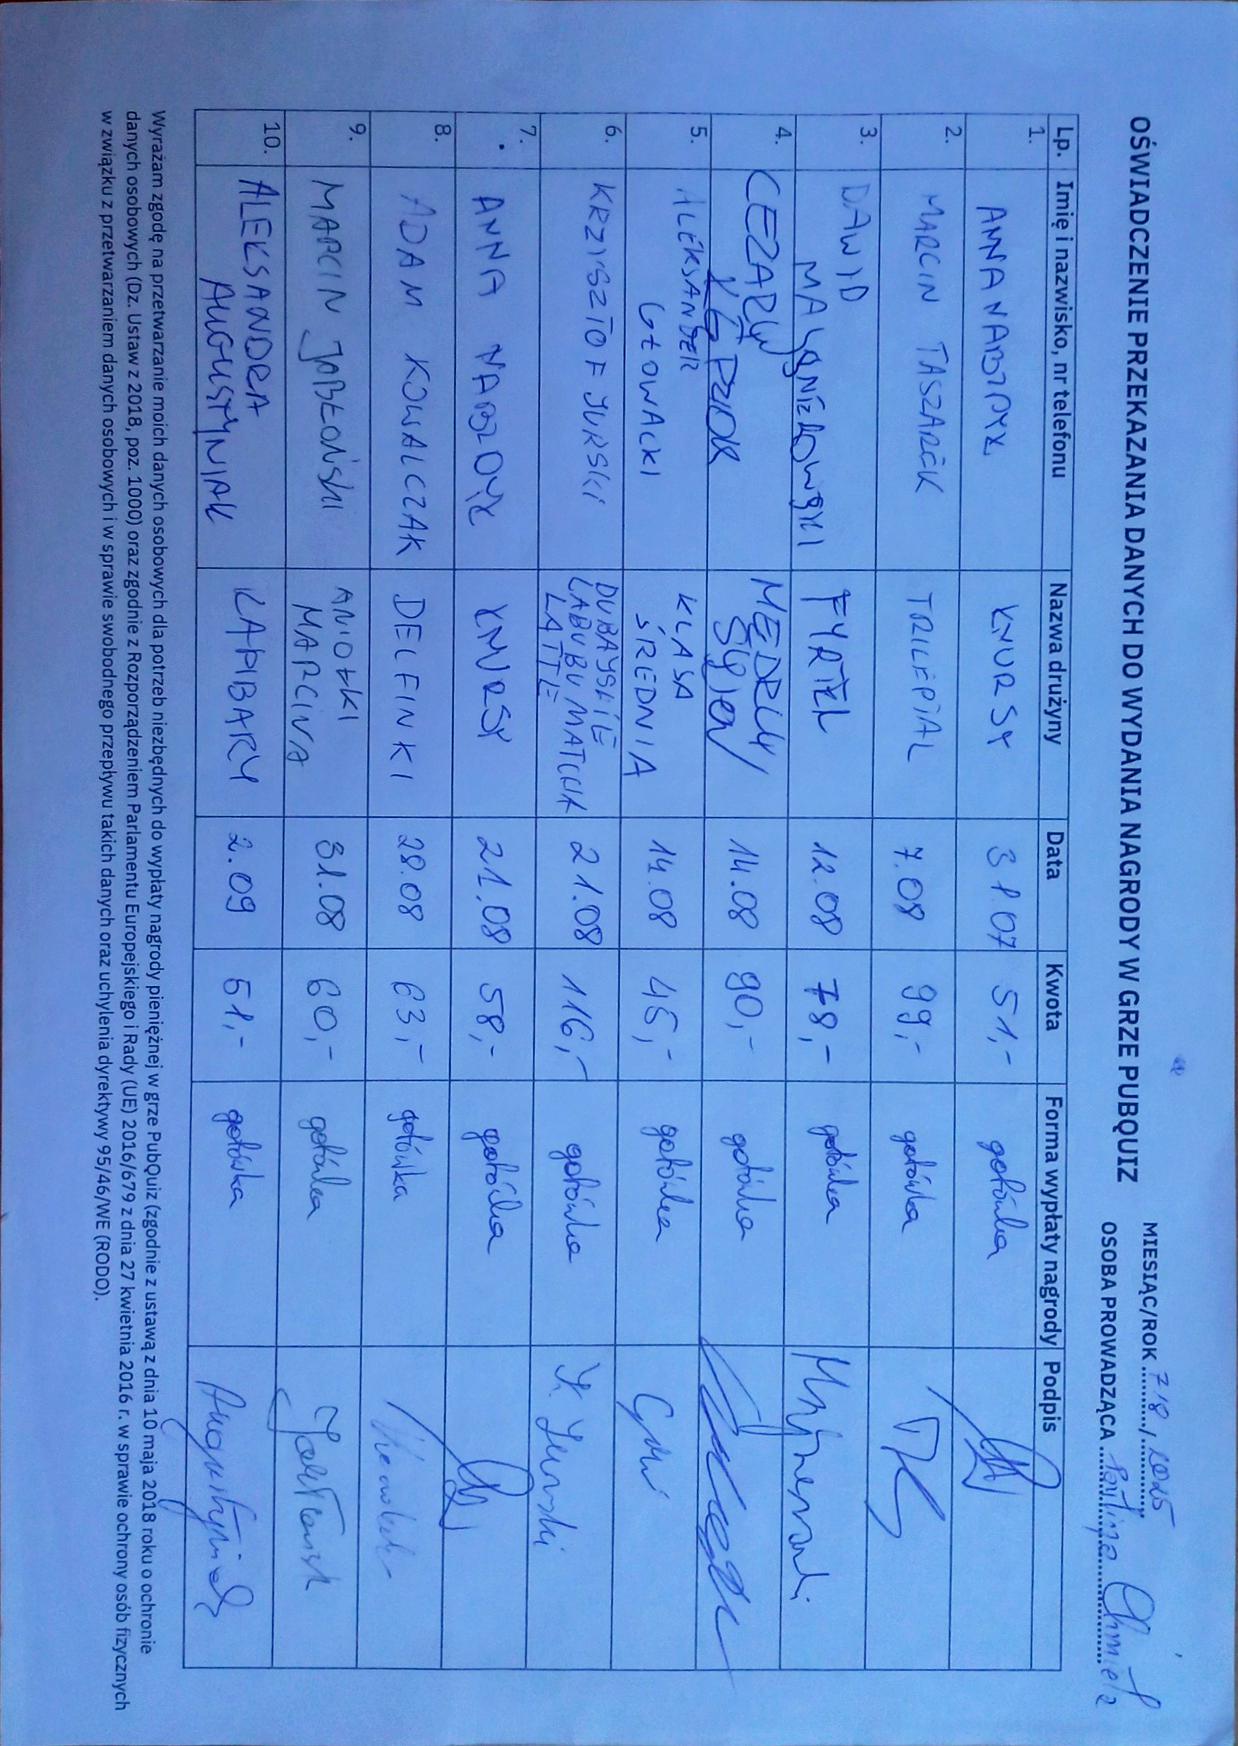 OŚWIADCZENIE PRZEKAZANIA DANYCH DO WYDANIA NAGRODY W GRZE PUBQUIZ
MIESIĄC/ROK 7/8 / 2025
OSOBA PROWADZĄCA Paulina
Lp. Imię i nazwisko, nr telefonu Nazwa drużyny Data Kwota Forma wypłaty nagrody Podpis
1. ANNA KNURSY 31.07 51,- gotówka
2. MARCIN TASZAREK TRILEPIAL 7.08 99,- gotówka
3. DAWID FYRTEL 12.08 78,- gotówka
4. CEZARY KĘDZIOR MĘDRCY 14.08 90,- gotówka
5. ALEKSANDER GŁOWACKI KLASA ŚREDNIA 14.08 45,- gotówka
6. KRZYSZTOF JURSKI DUBAJSKIE LABUBU MATCHA LATTE 21.08 116,- gotówka K. Jurski
7. ANNA KNURSY 21.08 58,- gotówka
8. ADAM KOWALCZAK DELFINKI 28.08 63,- gotówka
9. MARCIN JABŁOŃSKI ANIOŁKI MARCINA 31.08 60,- gotówka Jabłoński
10. ALEKSANDRA AUGUSTYNIAK KAPIBARY 2.09 51,- gotówka Augustyniak
Wyrażam zgodę na przetwarzanie moich danych osobowych dla potrzeb niezbędnych do wypłaty nagrody pieniężnej w grze PubQuiz (zgodnie z ustawą z dnia 10 maja 2018 roku o ochronie
danych osobowych (Dz. Ustaw z 2018, poz. 1000) oraz zgodnie z Rozporządzeniem Parlamentu Europejskiego i Rady (UE) 2016/679 z dnia 27 kwietnia 2016 r. w sprawie ochrony osób fizycznych
w związku z przetwarzaniem danych osobowych i w sprawie swobodnego przepływu takich danych oraz uchylenia dyrektywy 95/46/WE (RODO).